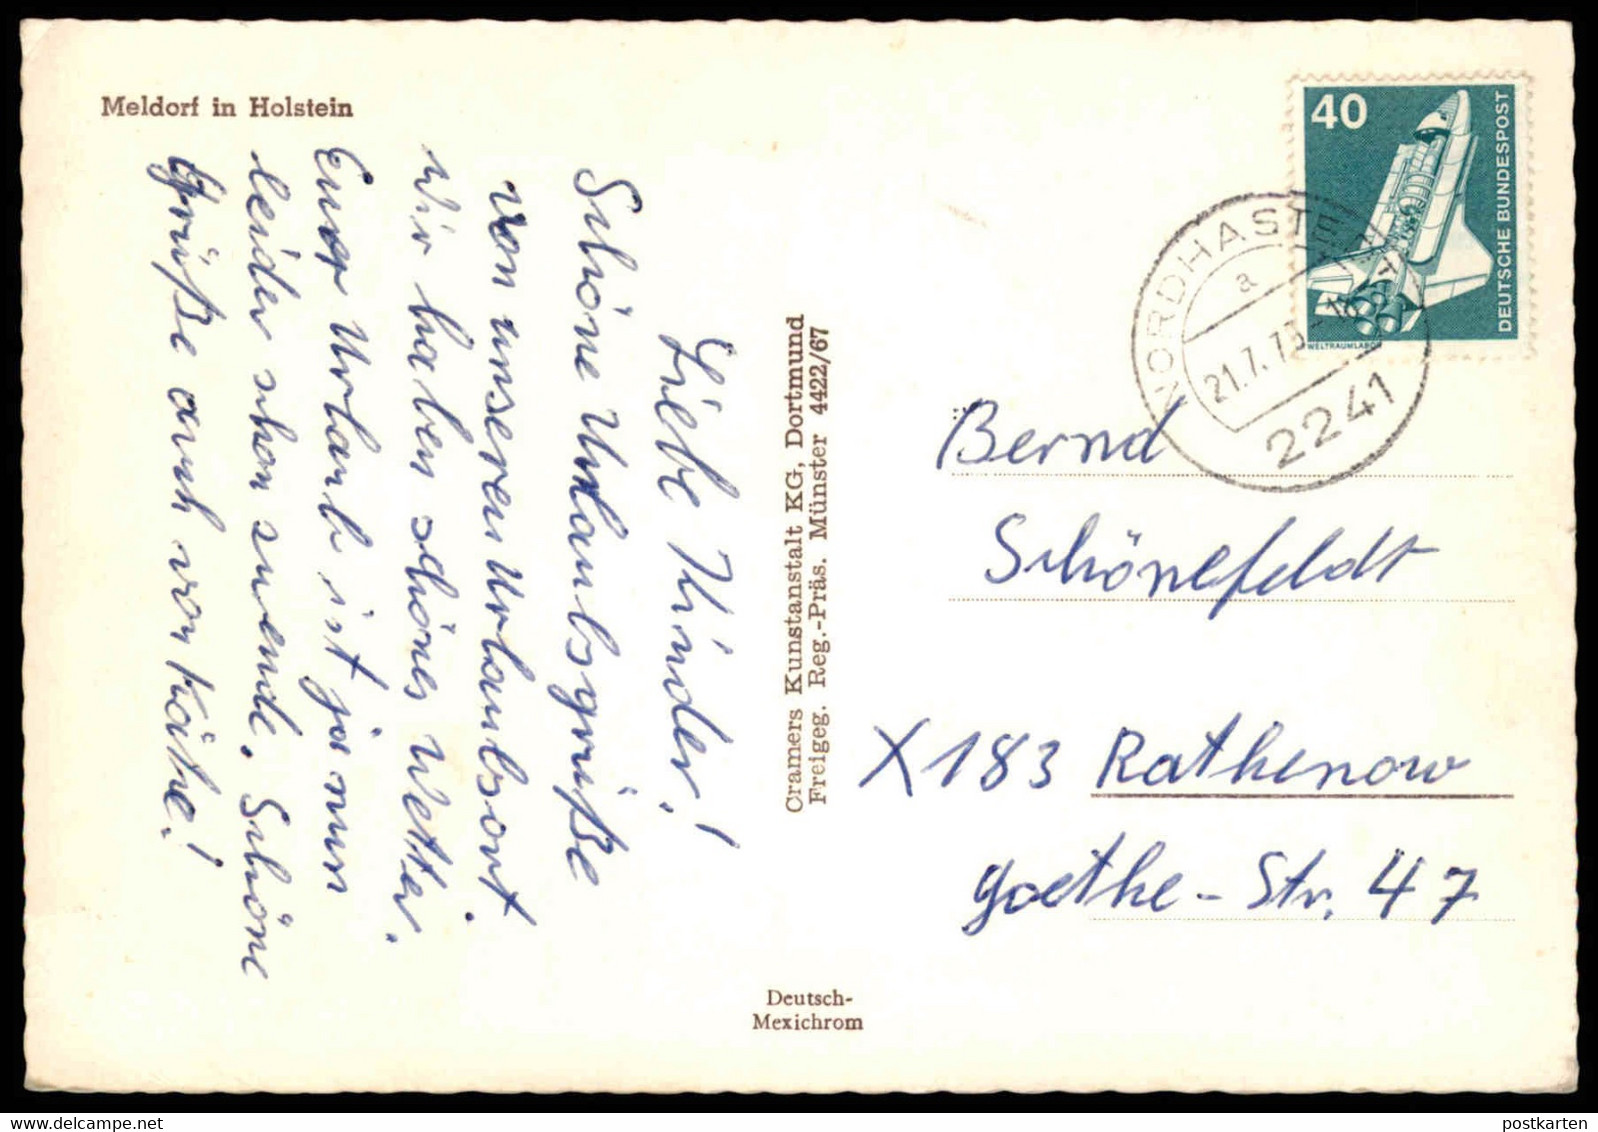 Meldorf in Holstein
Liebe Kinder!
Schöne Urlaubsgrüße
von unseren Urlaubsort.
Wir haben schönes Wetter.
Euer Urlaub ist ja nun
leider schon zuende. Schöne
Grüße auch von Käthe!
Cramers Kunstanstalt KG, Dortmund
Freigeg. Reg.-Präs. Münster 4422/67
Deutsch-
Mexichrom
40
DEUTSCHE BUNDESPOST
WELTRAUMLABOR
NORDHASTEDT
a
21.7.7
2241
Bernd
Schönefeldt
X183 Rathenow
Goethe-Str. 47
postkarten